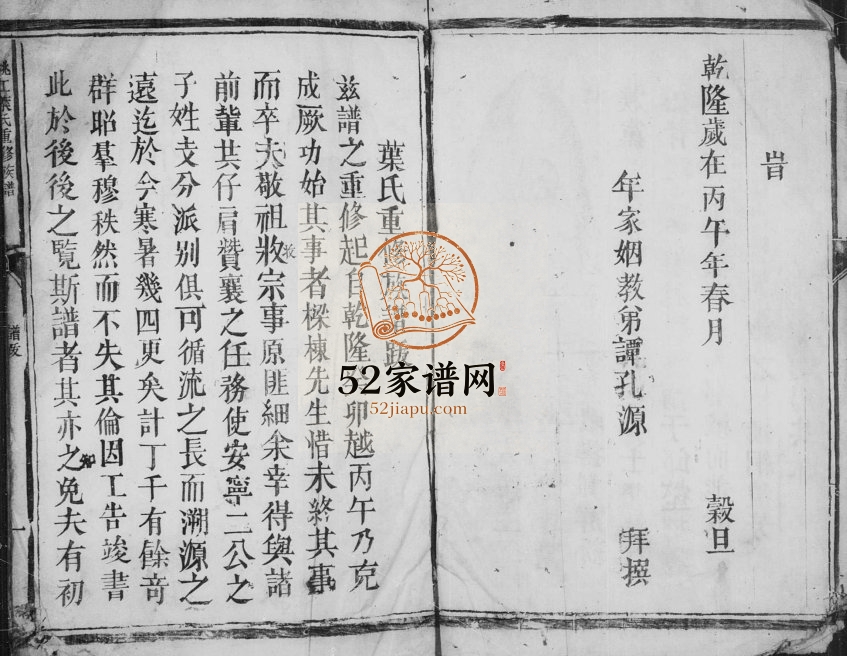 旹
乾隆歲在丙午年春月 穀旦
年家姻教弟譚孔源 拜撰
葉氏重修族譜跋
茲譜之重修起自乾隆卯越丙午乃克
成厥功始其事者樑棟先生惜未終其事
而卒夫敬祖收宗事原匪細余幸得與諸
前輩共仔肩贊襄之任務使安寧二公之
子姓支分派別俱可循流之長而溯源之
遠迄於今寒暑幾四更矣計丁千有餘竒
群昭羣穆秩然而不失其倫因工告竣書
此於後後之覽斯譜者其亦知之免夫有初
江葉氏重修族譜
譜跋
一
52家谱网
52jiapu.com